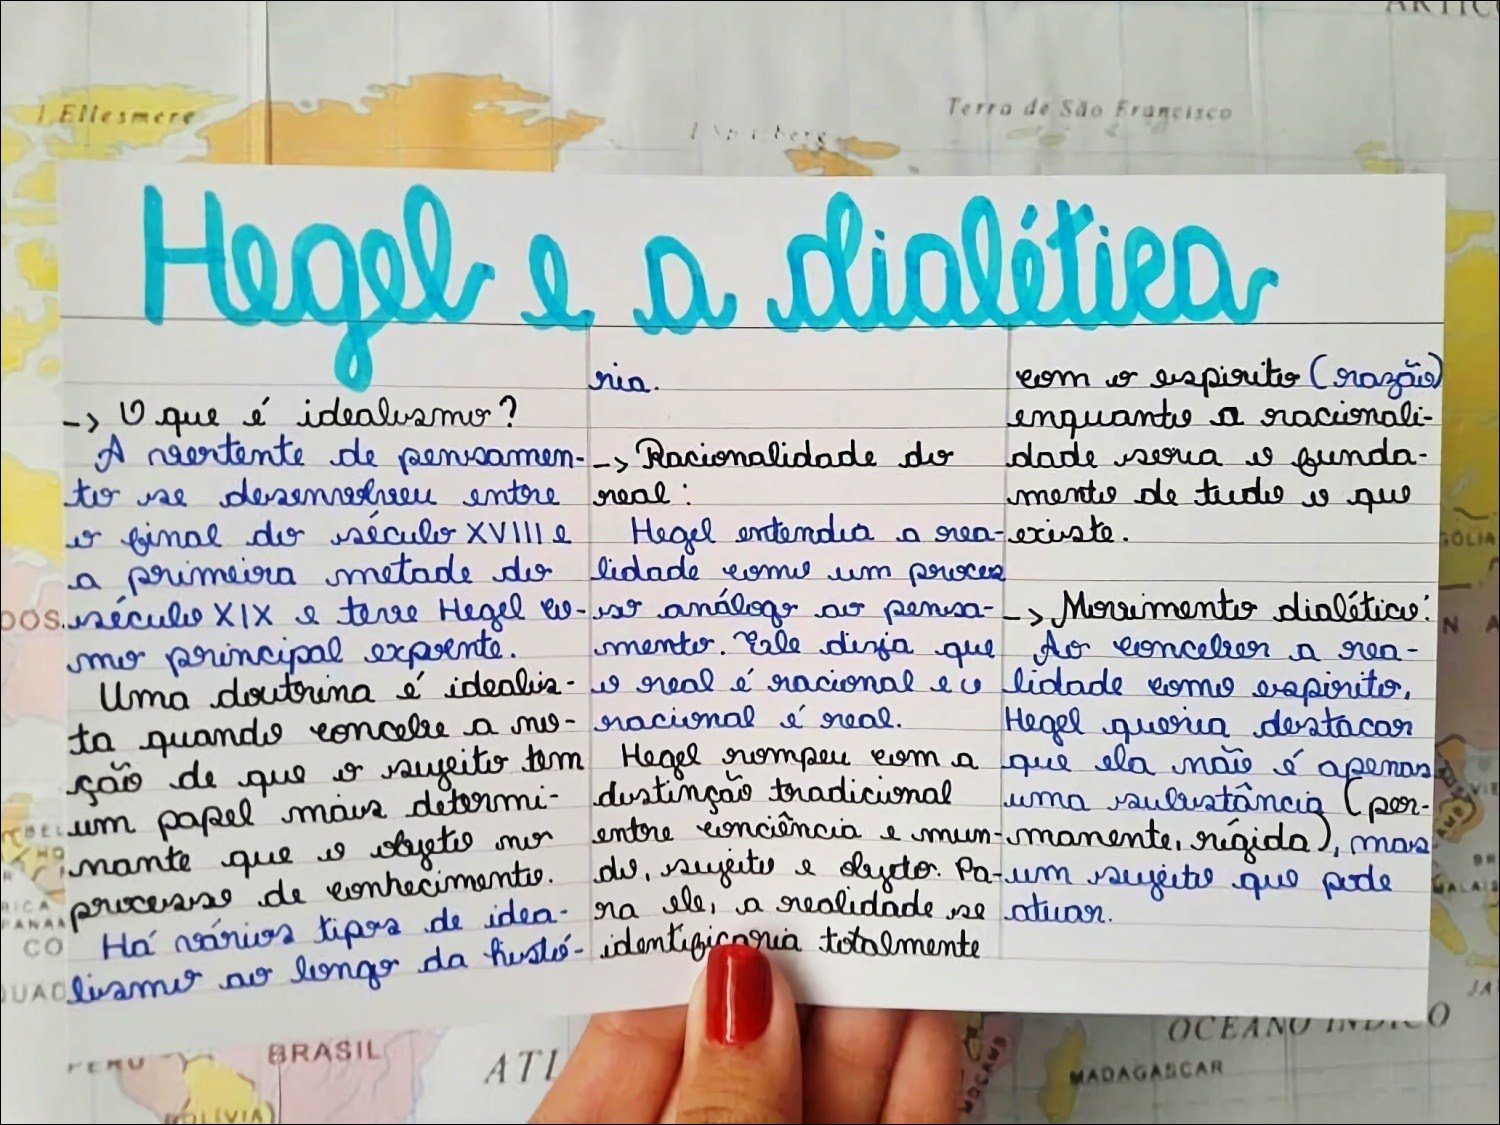 ARTIC
I Ellesmere
Terra de São Francisco
Hegel e a dialética
-> O que é idealismo?
A vertente de pensamen-
to se desenvolveu entre
o final do século XVIII e
a primeira metade do
século XIX e teve Hegel co-
mo principal expoente.
Uma doutrina é idealis-
ta quando concebe a no-
ção de que o sujeito tem
um papel mais determi-
nante que o objeto no
processo de conhecimento.
Há vários tipos de idea-
lismo ao longo da histó-
ria.
-> Racionalidade do
real:
Hegel entendia a rea-
lidade como um proces
so análogo ao pensa-
mento. Ele dizia que
o real é racional e o
racional é real.
Hegel rompeu com a
distinção tradicional
entre conciência e mun-
do, sujeito e objeto. Pa-
ra ele, a realidade se
identificaria totalmente
com o espirito (razão)
enquanto a racionali-
dade seria o funda-
mento de tudo o que
existe.
-> Movimento dialético:
Ao conceber a rea-
lidade como espirito,
Hegel queria destacar
que ela não é apenas
uma substância (per-
manente, rígida), mas
um sujeito que pode
atuar.
PERU
BRASIL
BOLÍVIA
ATL
OCEANO INDICO
MADAGASCAR